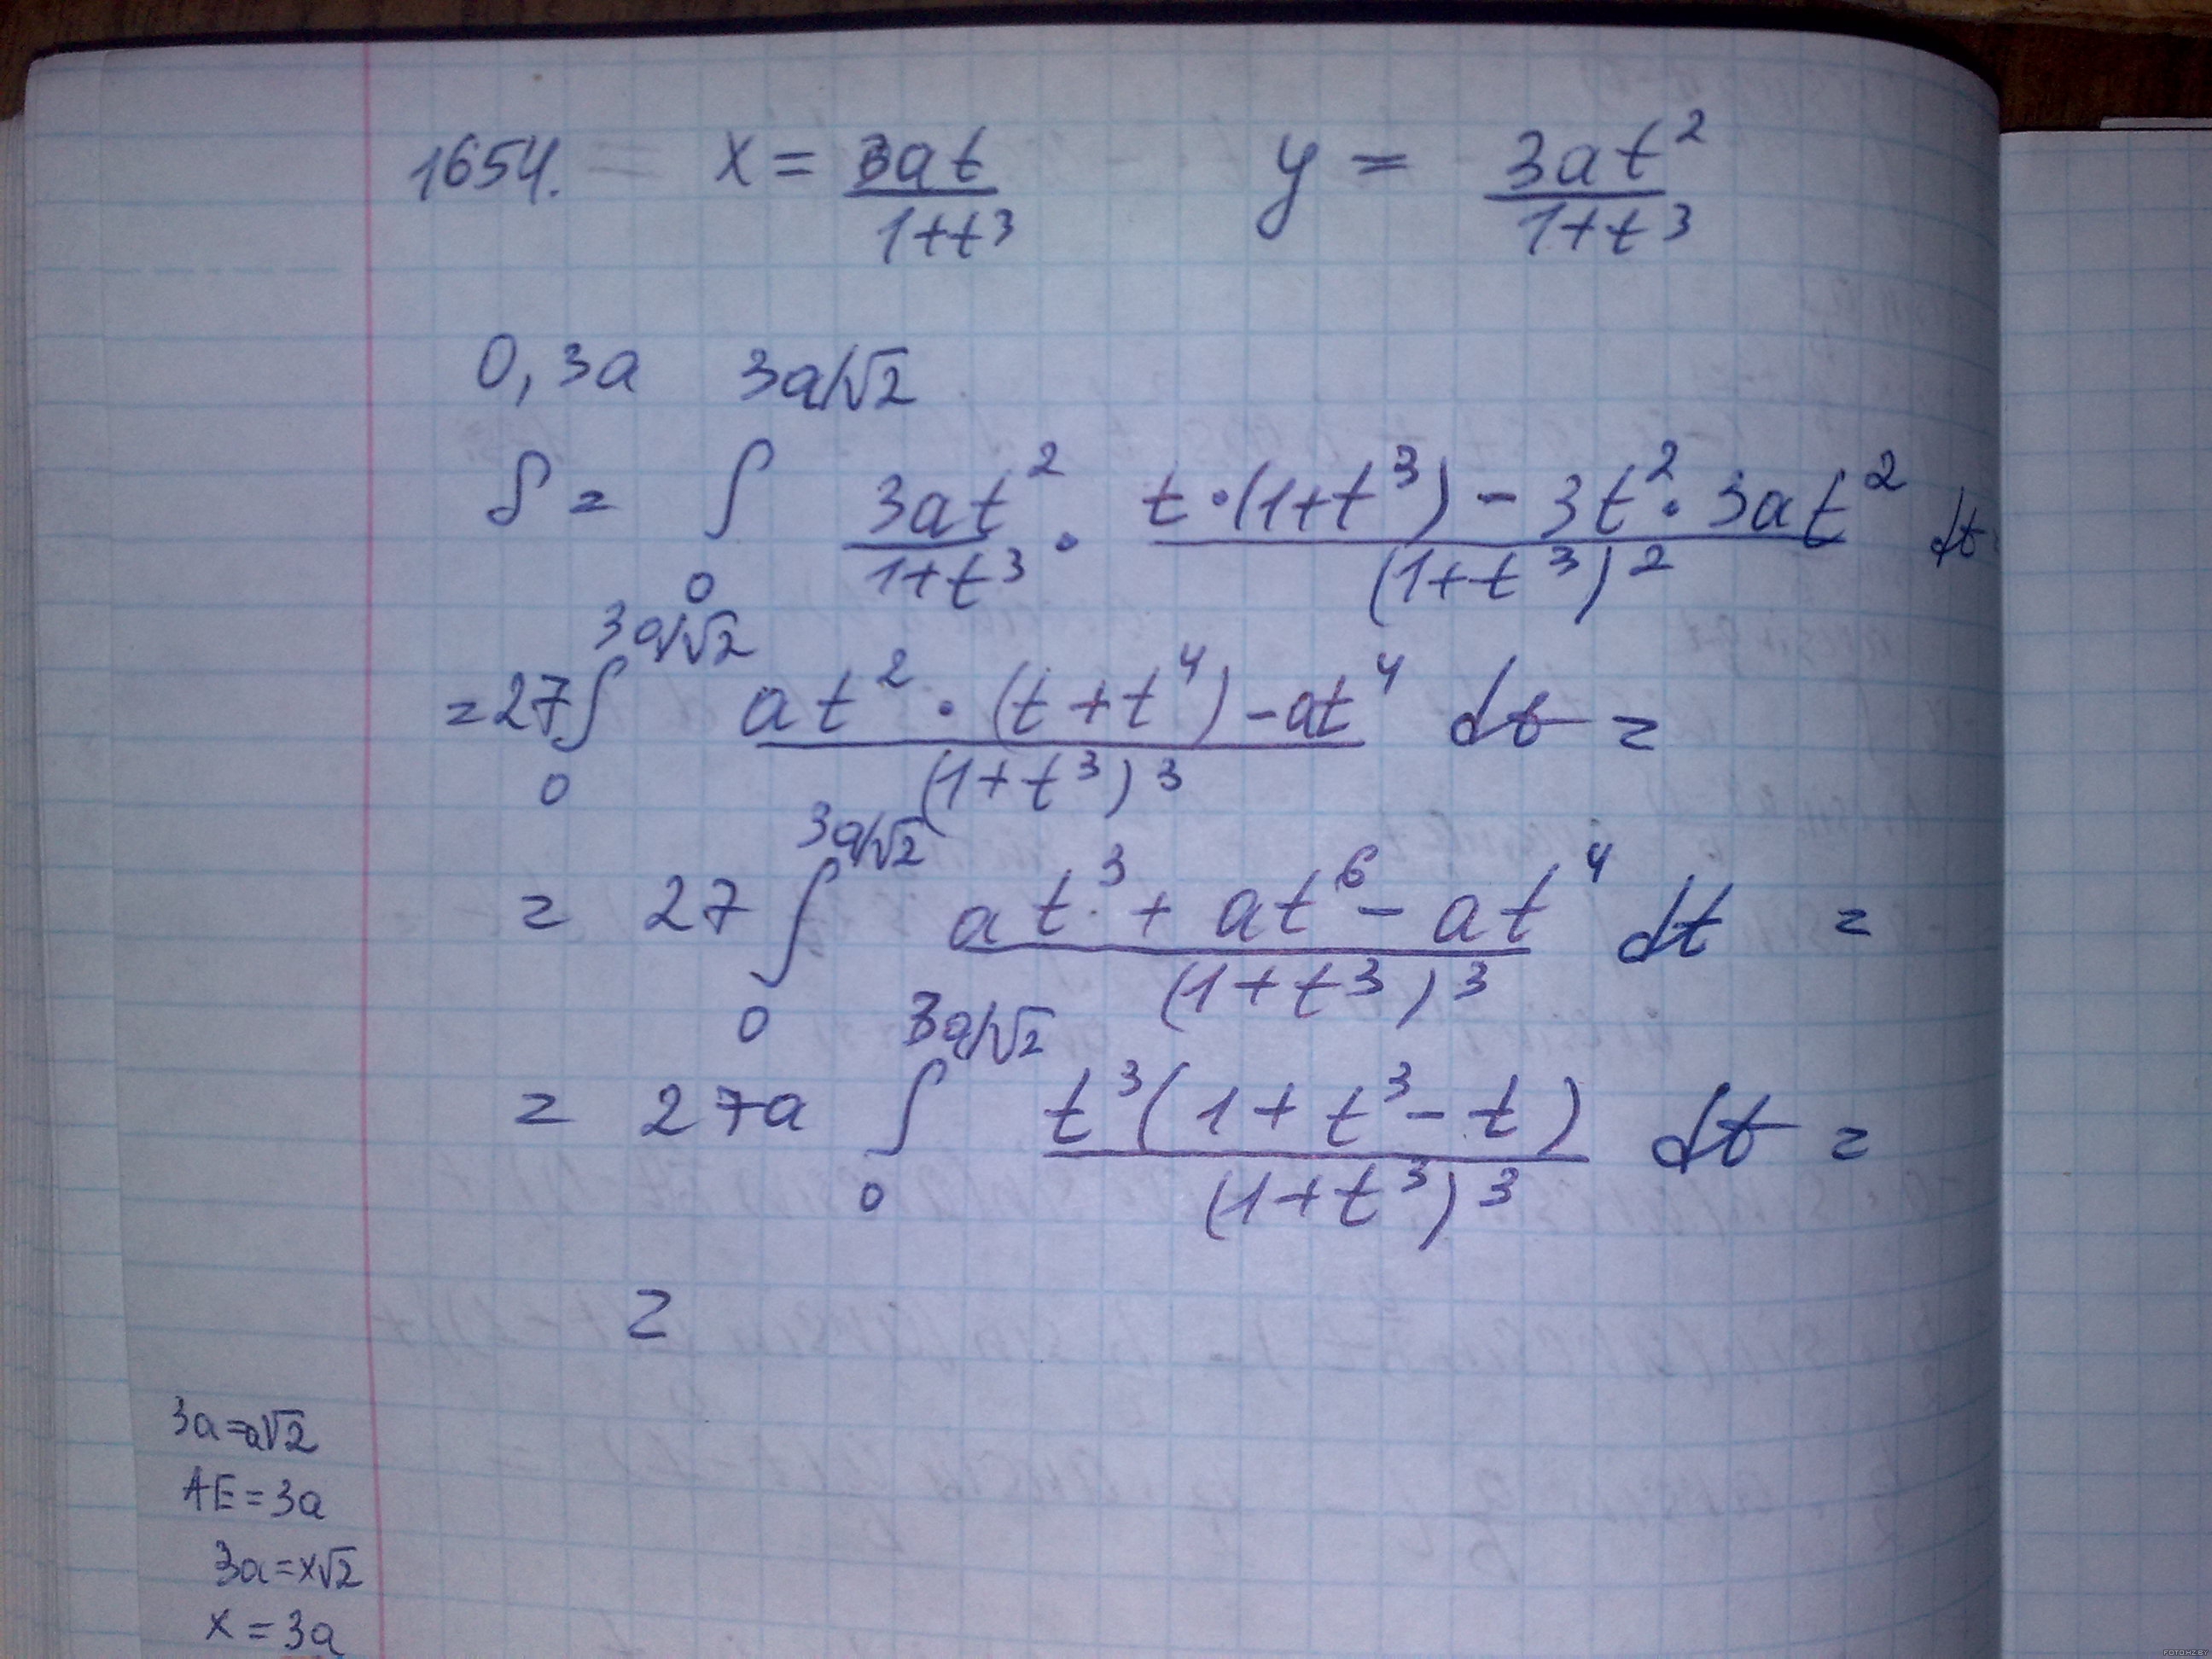 1654. x = 3at / 1+t³ y = 3at² / 1+t³
0,3a 3a/√2
S = ∫₀^{3a/√2} 3at² / 1+t³ · t·(1+t³) - 3t²·3at² / (1+t³)² dt
= 27 ∫₀^{3a/√2} at²·(t+t⁴) - at⁴ / (1+t³)³ dt =
= 27 ∫₀^{3a/√2} at³ + at⁶ - at⁴ / (1+t³)³ dt =
= 27a ∫₀^{3a/√2} t³(1+t³-t) / (1+t³)³ dt =
=
3a=a√2
AE=3a
3a=x√2
x=3a